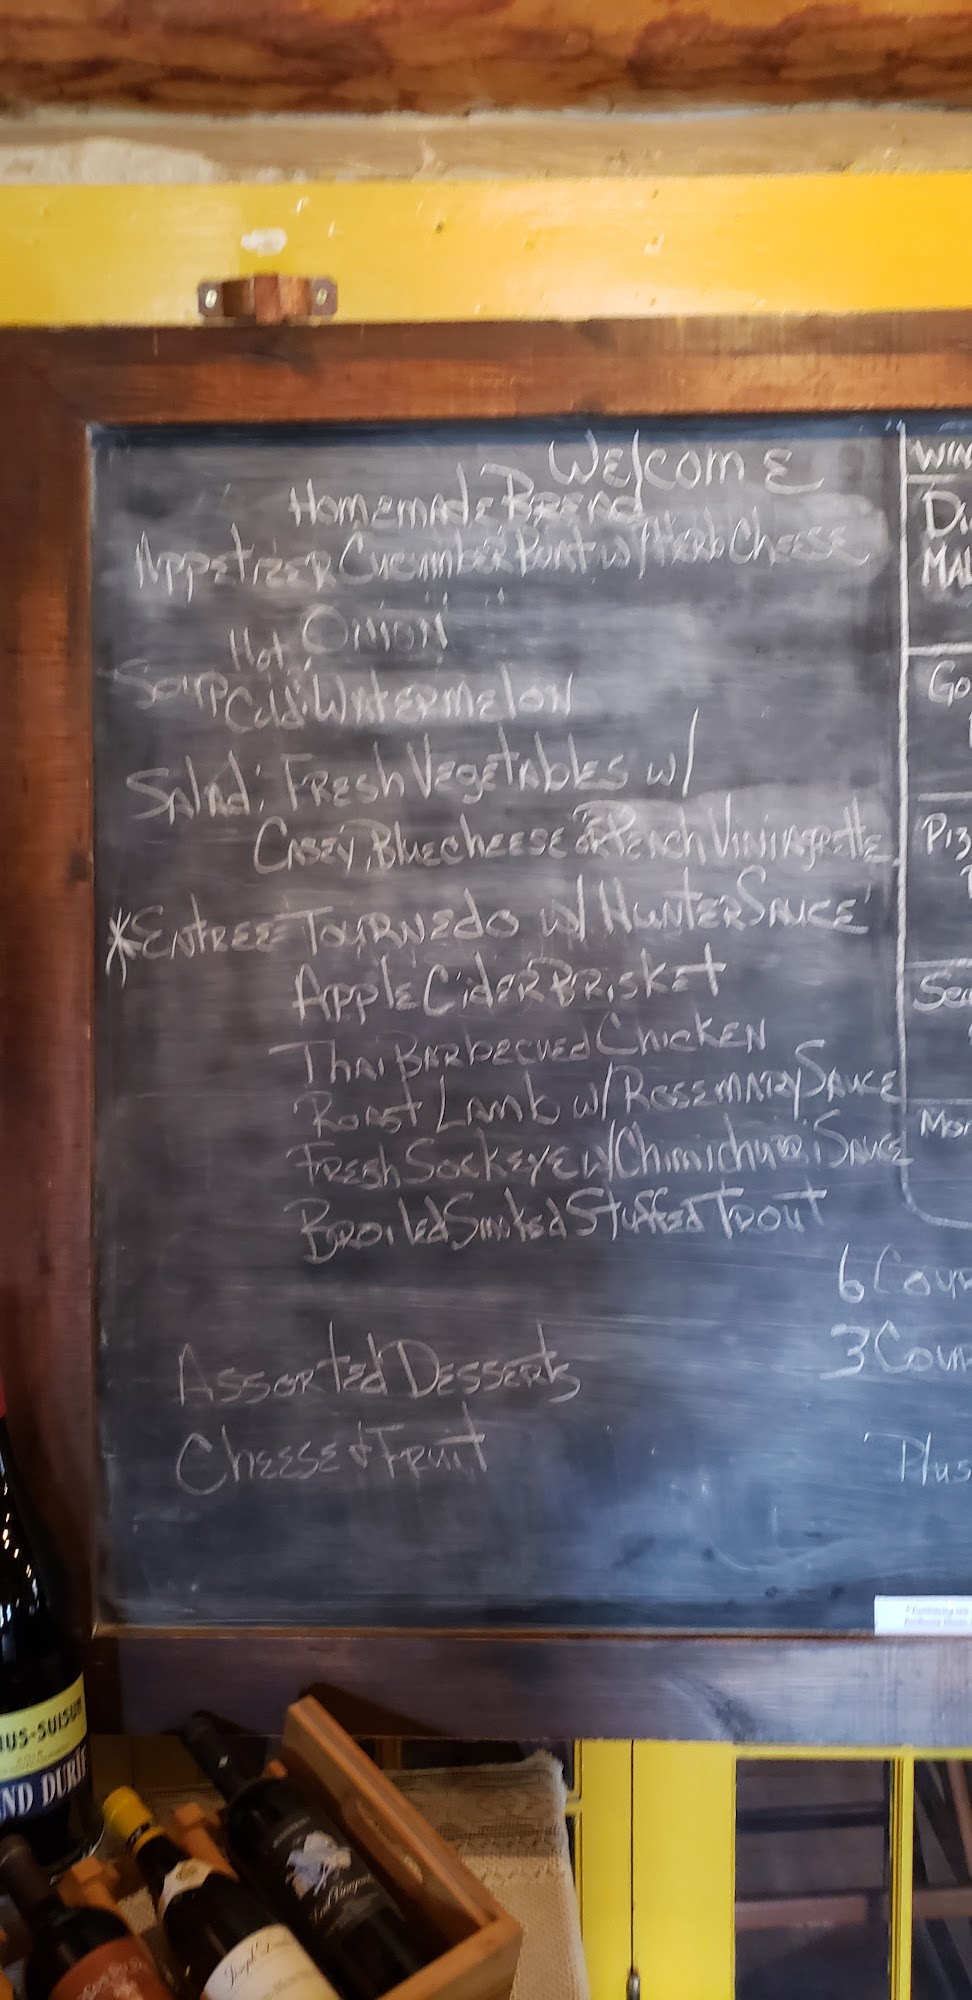 Welcome
Homemade Bread
Appetizer Cucumber Boat w/ Herb Cheese
Hot: Onion
Soup
Cold: Watermelon
Salad: Fresh Vegetables w/
Casey, Bluecheese or Peach Viniagrette
*Entree Tournedo w/ Hunter Sauce
Apple Cider Brisket
Thai Barbecued Chicken
Roast Lamb w/ Rosemary Sauce
Fresh Sockeye w/ Chimichurri Sauce
Broiled Smoked Stuffed Trout
Assorted Desserts
Cheese & Fruit
WIN
Di
MAL
Go
Piz
Sea
Mor
6 Cour
3 Cour
Plus
US-SUISUN
ND DURIF
Joseph